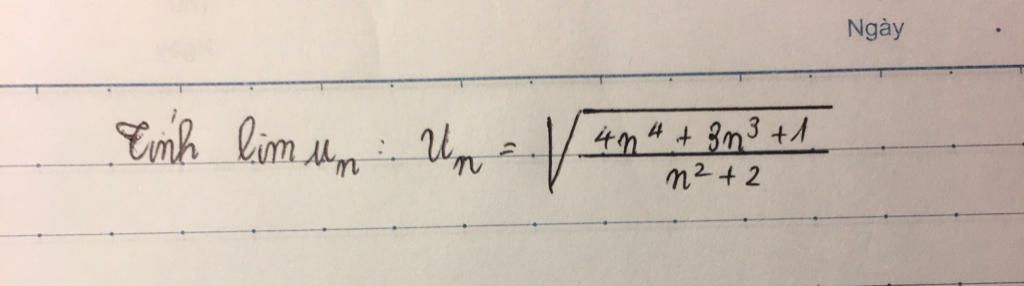 Ngày
Tính lim uₙ: Uₙ = √((4n⁴ + 3n³ + 1)/(n² + 2))